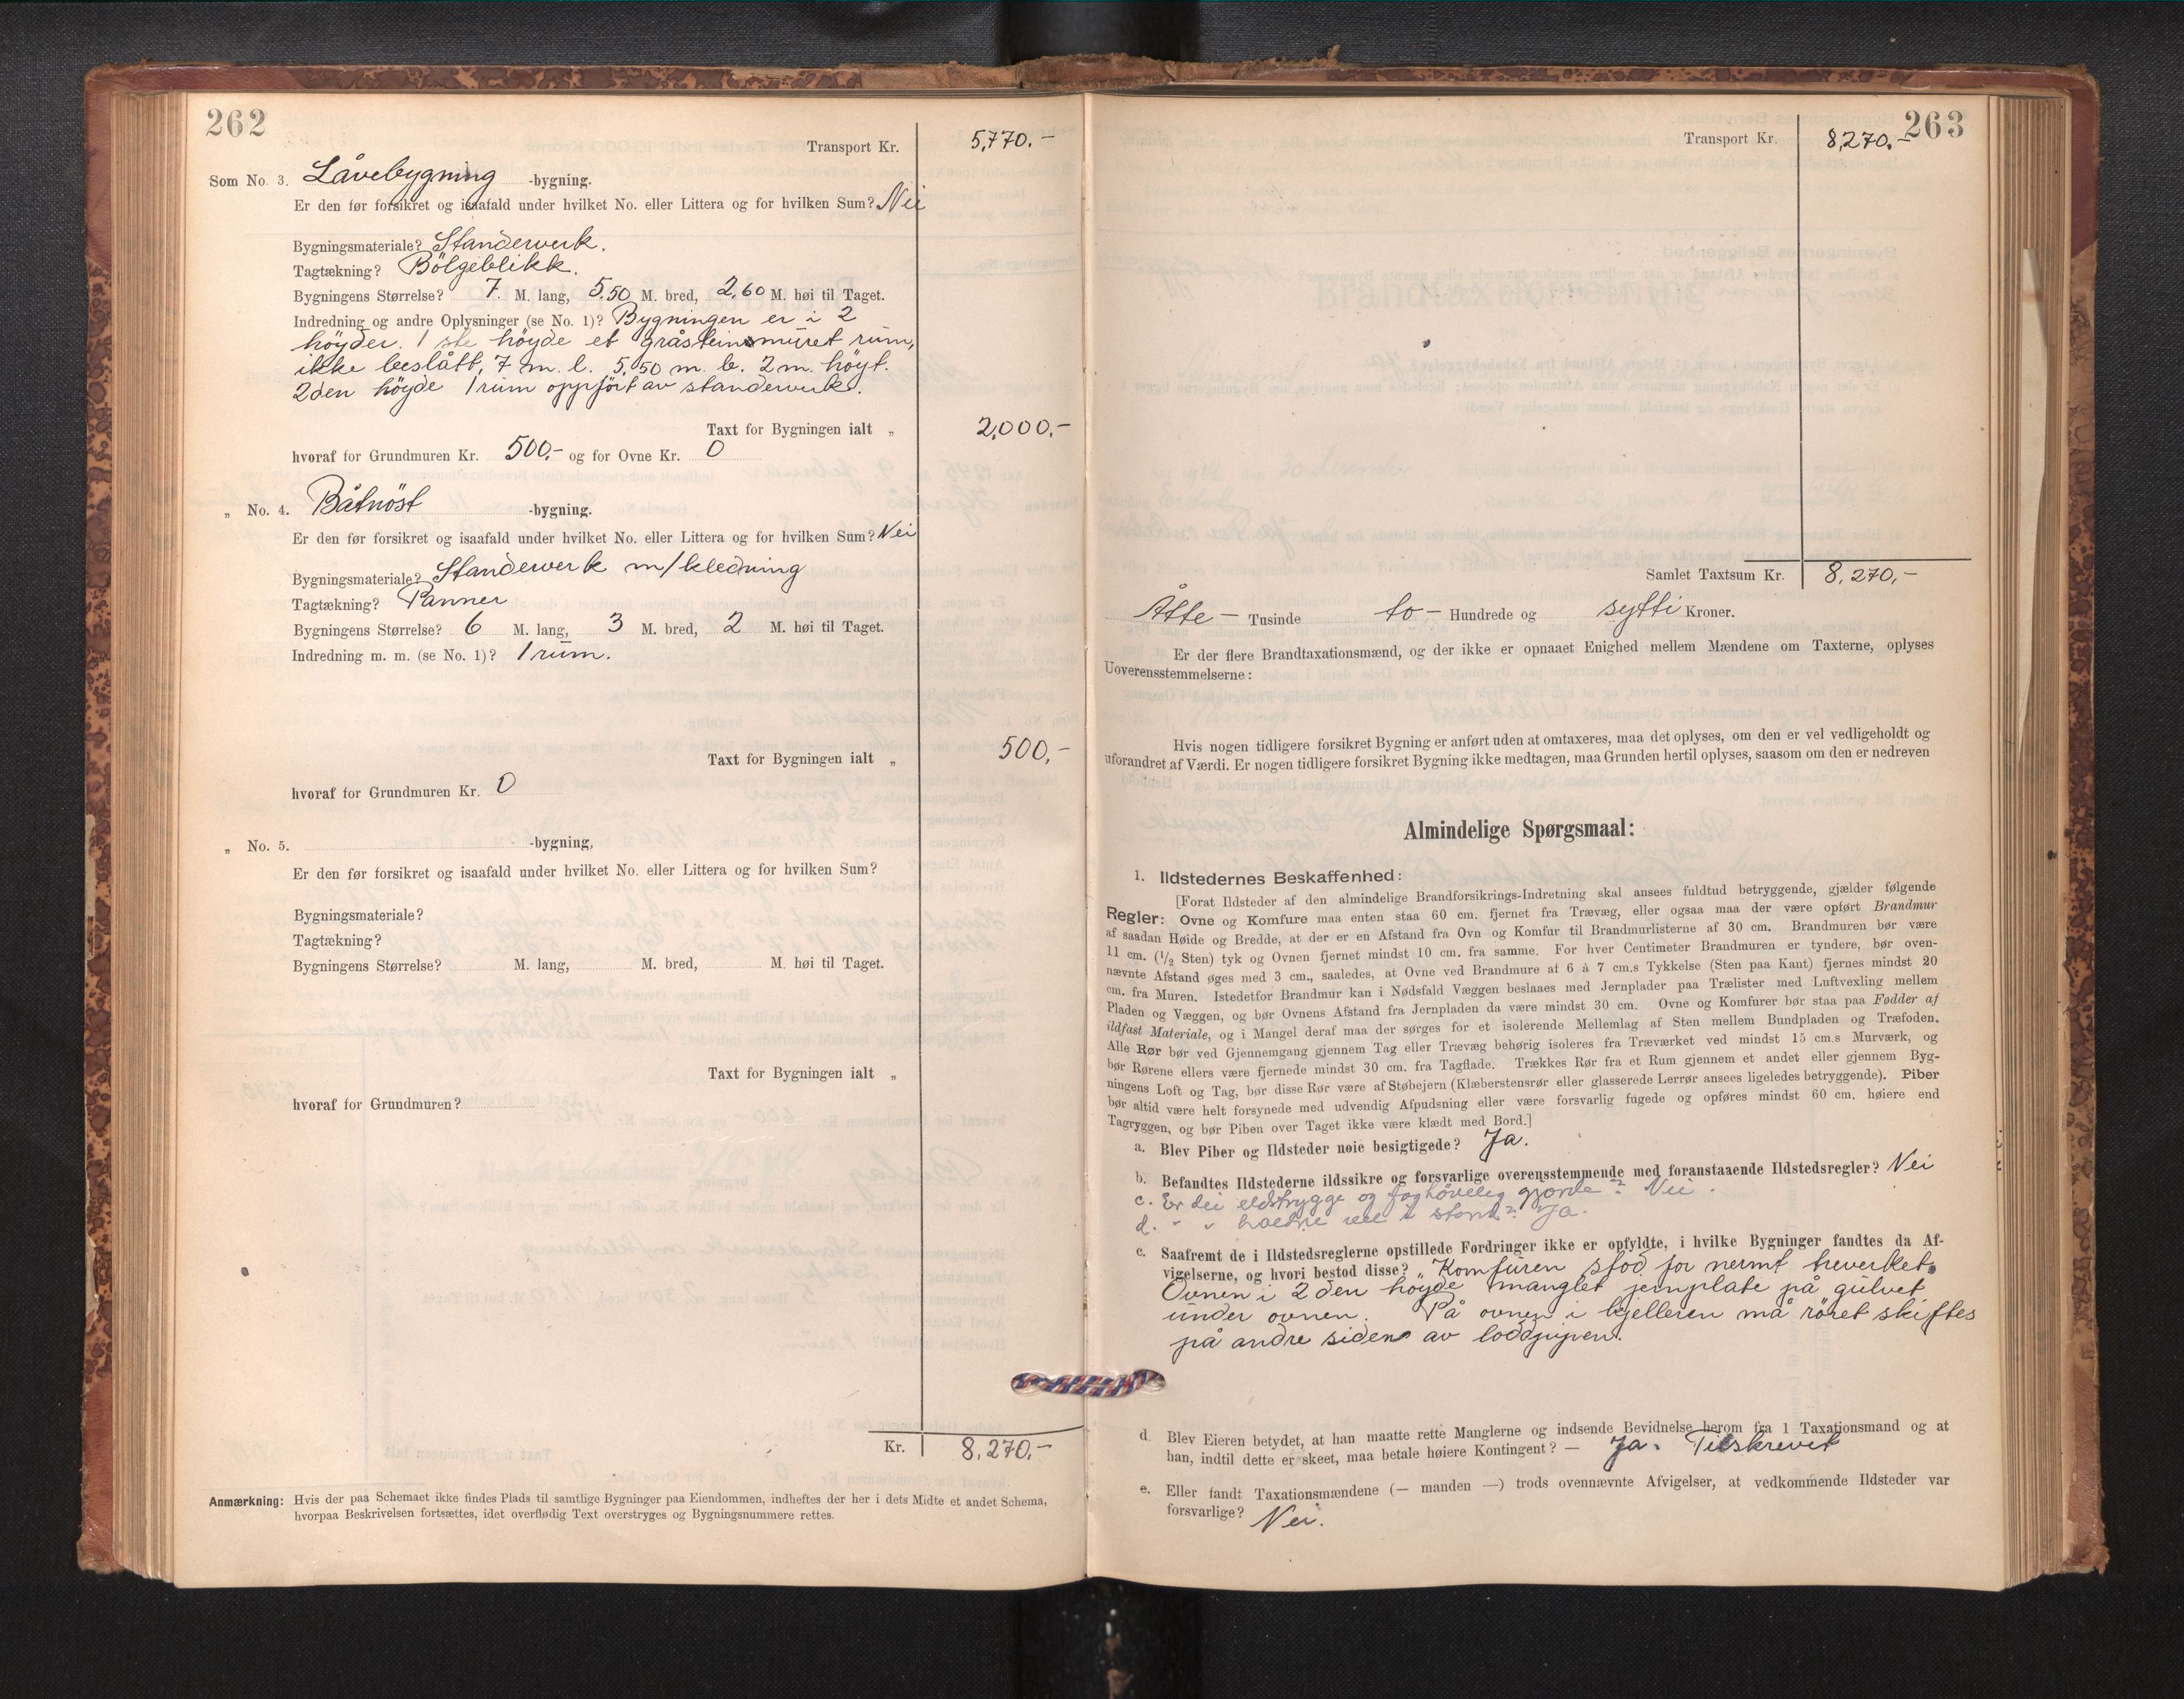 262
Transport Kr. 5,770.-
Som No. 3. Låvebygning -bygning.
Er den før forsikret og isaafald under hvilket No. eller Littera og for hvilken Sum? Nei
Bygningsmateriale? Standerverk.
Tagtækning? Bölgeblikk.
Bygningens Størrelse? 7. M. lang, 5.50 M. bred, 2,60 M. høi til Taget.
Indredning og andre Oplysninger (se No. 1)? Bygningen er i 2
höyder. 1 ste höyde et gråsteinsmuret rum,
ikke beslått, 7 m. l. 5,50 m. b. 2 m. höyt.
2den höyde 1 rum oppfört av standerverk.
Taxt for Bygningen ialt „ 2,000.-
hvoraf for Grundmuren Kr. 500,- og for Ovne Kr. 0
„ No. 4. Båtnöst -bygning.
Er den før forsikret og isaafald under hvilket No. eller Littera og for hvilken Sum? Nei
Bygningsmateriale? Standerverk m/kledning
Tagtækning? Panner
Bygningens Størrelse? 6 M. lang, 3 M. bred, 2 M. høi til Taget.
Indredning m. m. (se No. 1)? 1 rum.
Taxt for Bygningen ialt „ 500,-
hvoraf for Grundmuren Kr. 0
„ No. 5. -bygning,
Er den før forsikret og isaafald under hvilket No. eller Littera og for hvilken Sum?
Bygningsmateriale?
Tagtækning?
Bygningens Størrelse? M. lang, M. bred, M. høi til Taget.
Taxt for Bygningen ialt „
hvoraf for Grundmuren?
Kr. 8,270.-
Anmærkning: Hvis der paa Schemaet ikke findes Plads til samtlige Bygninger paa Eiendommen, indheftes der her i dets Midte et andet Schema,
hvorpaa Beskrivelsen fortsættes, idet overflødig Text overstryges og Bygningsnummere rettes.
263
Transport Kr. 8,270.-
Samlet Taxtsum Kr. 8,270,-
Åtte - Tusinde to - Hundrede og sytti Kroner.
Er der flere Brandtaxationsmænd, og der ikke er opnaaet Enighed mellem Mændene om Taxterne, oplyses
Uoverensstemmelserne:
Hvis nogen tidligere forsikret Bygning er anført uden at omtaxeres, maa det oplyses, om den er vel vedligeholdt og
uforandret af Værdi. Er nogen tidligere forsikret Bygning ikke medtagen, maa Grunden hertil oplyses, saasom om den er nedreven
Almindelige Spørgsmaal:
1. Ildstedernes Beskaffenhed:
[Forat Ildsteder af den almindelige Brandforsikrings-Indretning skal ansees fuldtud betryggende, gjælder følgende
Regler: Ovne og Komfure maa enten staa 60 cm. fjernet fra Trævæg, eller ogsaa maa der være opført Brandmur
af saadan Høide og Bredde, at der er en Afstand fra Ovn og Komfur til Brandmurlisterne af 30 cm. Brandmuren bør være
11 cm. (1/2 Sten) tyk og Ovnen fjernet mindst 10 cm. fra samme. For hver Centimeter Brandmuren er tyndere, bør oven-
nævnte Afstand øges med 3 cm., saaledes, at Ovne ved Brandmure af 6 à 7 cm.s Tykkelse (Sten paa Kant) fjernes mindst 20
cm. fra Muren. Istedetfor Brandmur kan i Nødsfald Væggen beslaaes med Jernplader paa Trælister med Luftvexling mellem
Pladen og Væggen, og bør Ovnens Afstand fra Jernpladen da være mindst 30 cm. Ovne og Komfurer bør staa paa Fødder af
ildfast Materiale, og i Mangel deraf maa der sørges for et isolerende Mellemlag af Sten mellem Bundpladen og Træfoden.
Alle Rør bør ved Gjennemgang gjennem Tag eller Trævæg behørig isoleres fra Træværket ved mindst 15 cm.s Murværk, og
bør Rørene ellers være fjernede mindst 30 cm. fra Tagflade. Trækkes Rør fra et Rum gjennem et andet eller gjennem Byg-
ningens Loft og Tag, bør disse Rør være af Støbejern (Klæberstensrør eller glasserede Lerrør ansees ligeledes betryggende). Piber
bør altid være helt forsynede med udvendig Afpudsning eller være forsvarlig fugede og opføres mindst 60 cm. høiere end
Tagryggen, og bør Piben over Taget ikke være klædt med Bord.]
a. Blev Piber og Ildsteder nøie besigtigede? Ja.
b. Befandtes Ildstederne ildssikre og forsvarlige overensstemmende med foranstaaende Ildstedsregler? Nei
c. Er dei eldstrygge og faghövelig gjorde? Nei.
d. " " haldne vel i stand? Ja.
c. Saafremt de i Ildstedsreglerne opstillede Fordringer ikke er opfyldte, i hvilke Bygninger fandtes da Af-
vigelserne, og hvori bestod disse? Komfuren stod for nermt treverket.
Ovnen i 2 den höyde manglet jernplate på gulvet
under ovnen. På ovnen i kjelleren må röret skiftes
på andre siden av loddpipen.
d. Blev Eieren betydet, at han maatte rette Manglerne og indsende Bevidnelse herom fra 1 Taxationsmand og at
han, indtil dette er skeet, maa betale høiere Kontingent? — Ja. Tilskrevet
e. Eller fandt Taxationsmændene (— manden —) trods ovennævnte Afvigelser, at vedkommende Ildsteder var
forsvarlige? Nei.